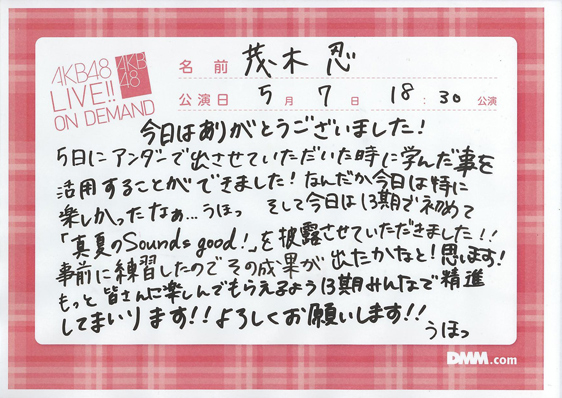 AKB48
LIVE!!
ON DEMAND
AKB
48
名前 茂木 忍
公演日 5月7日 18:30公演
今日はありがとうございました!
5日にアンダーで出させていただいた時に学んだ事を
活用することができました!なんだか今日は特に
楽しかったなぁ…うほっ そして今日は13期で初めて
「真夏のSounds good!」を披露させていただきました!!
事前に練習したのでその成果が出たかなと!思います!
もっと皆さんに楽しんでもらえるよう13期みんなで精進
してまいります!!よろしくお願いします!!
うほっ
DMM.com